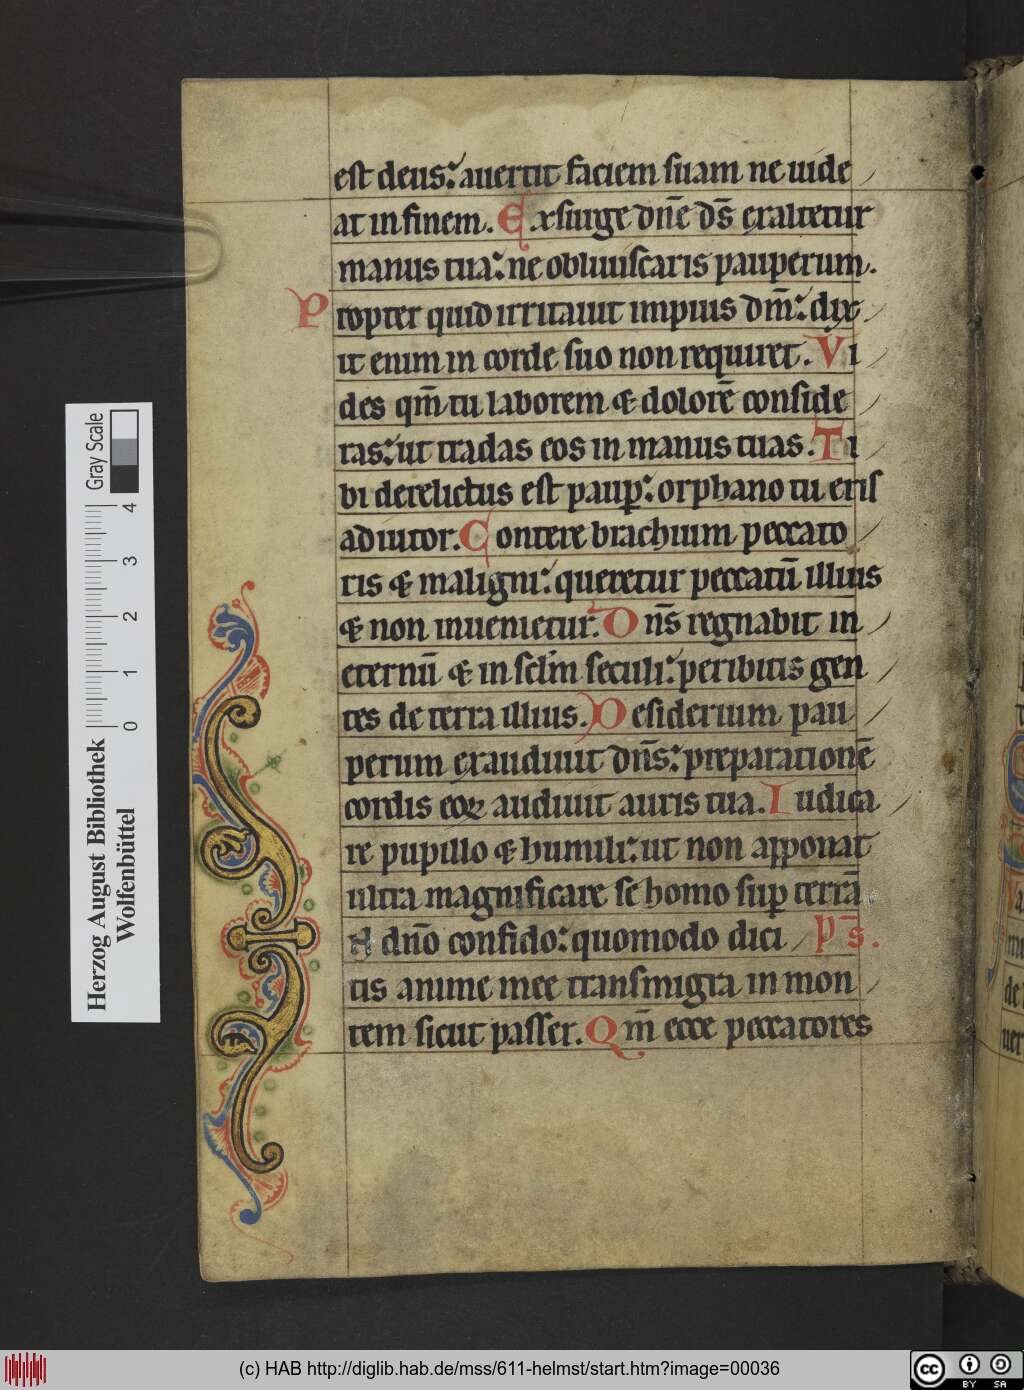 est deus: auertit faciem suam ne uide
at in finem. Exsurge dn̄e ds̄ exaltetur
manus tua: ne obliuiscaris pauperum.
Propter quid irritauit impius dm̄: dix
it enim in corde suo non requiret. Vi
des qm̄ tu laborem & dolorē conside
ras: ut tradas eos in manus tuas. Ti
bi derelictus est paup̱: orphano tu eris
adiutor. Contere brachium peccato
ris & maligni: queretur peccatū illius
& non inuenietur. Dns̄ regnabit in
eternū & in sclm̄ seculi: peribitis gen
tes de terra illius. Desiderium pau
perum exaudiuit dns̄: preparationē
cordis eoꝝ audiuit auris tua. Iudica
re pupillo & humili: ut non apponat
ultra magnificare se homo sup̱ terrā
N dn̄o confido: quomodo dici p̄s.
tis anime mee transmigra in mon
tem sicut passer. Qm̄ ecce peccatores
Herzog August Bibliothek
Wolfenbüttel
0 1 2 3 4
Gray Scale
(c) HAB http://diglib.hab.de/mss/611-helmst/start.htm?image=00036
cc BY SA